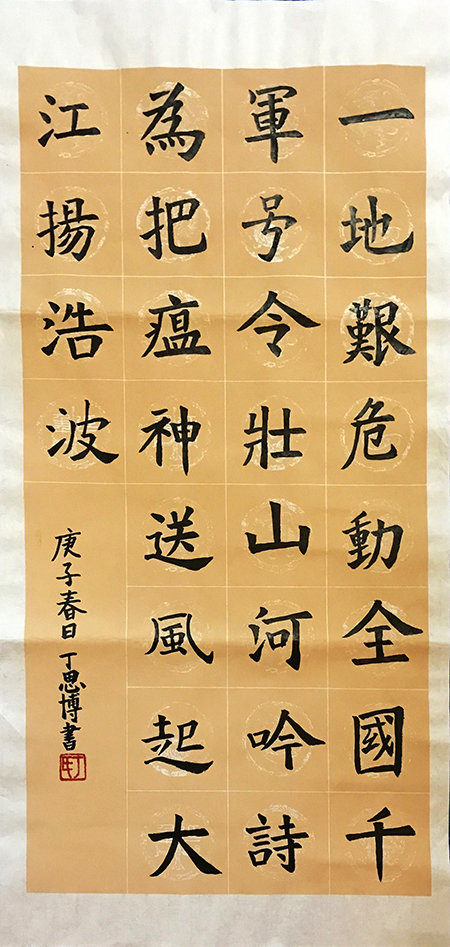 一地艱危動全國千
軍号令壯山河吟詩
為把瘟神送風起大
江揚浩波
庚子春日丁思博書